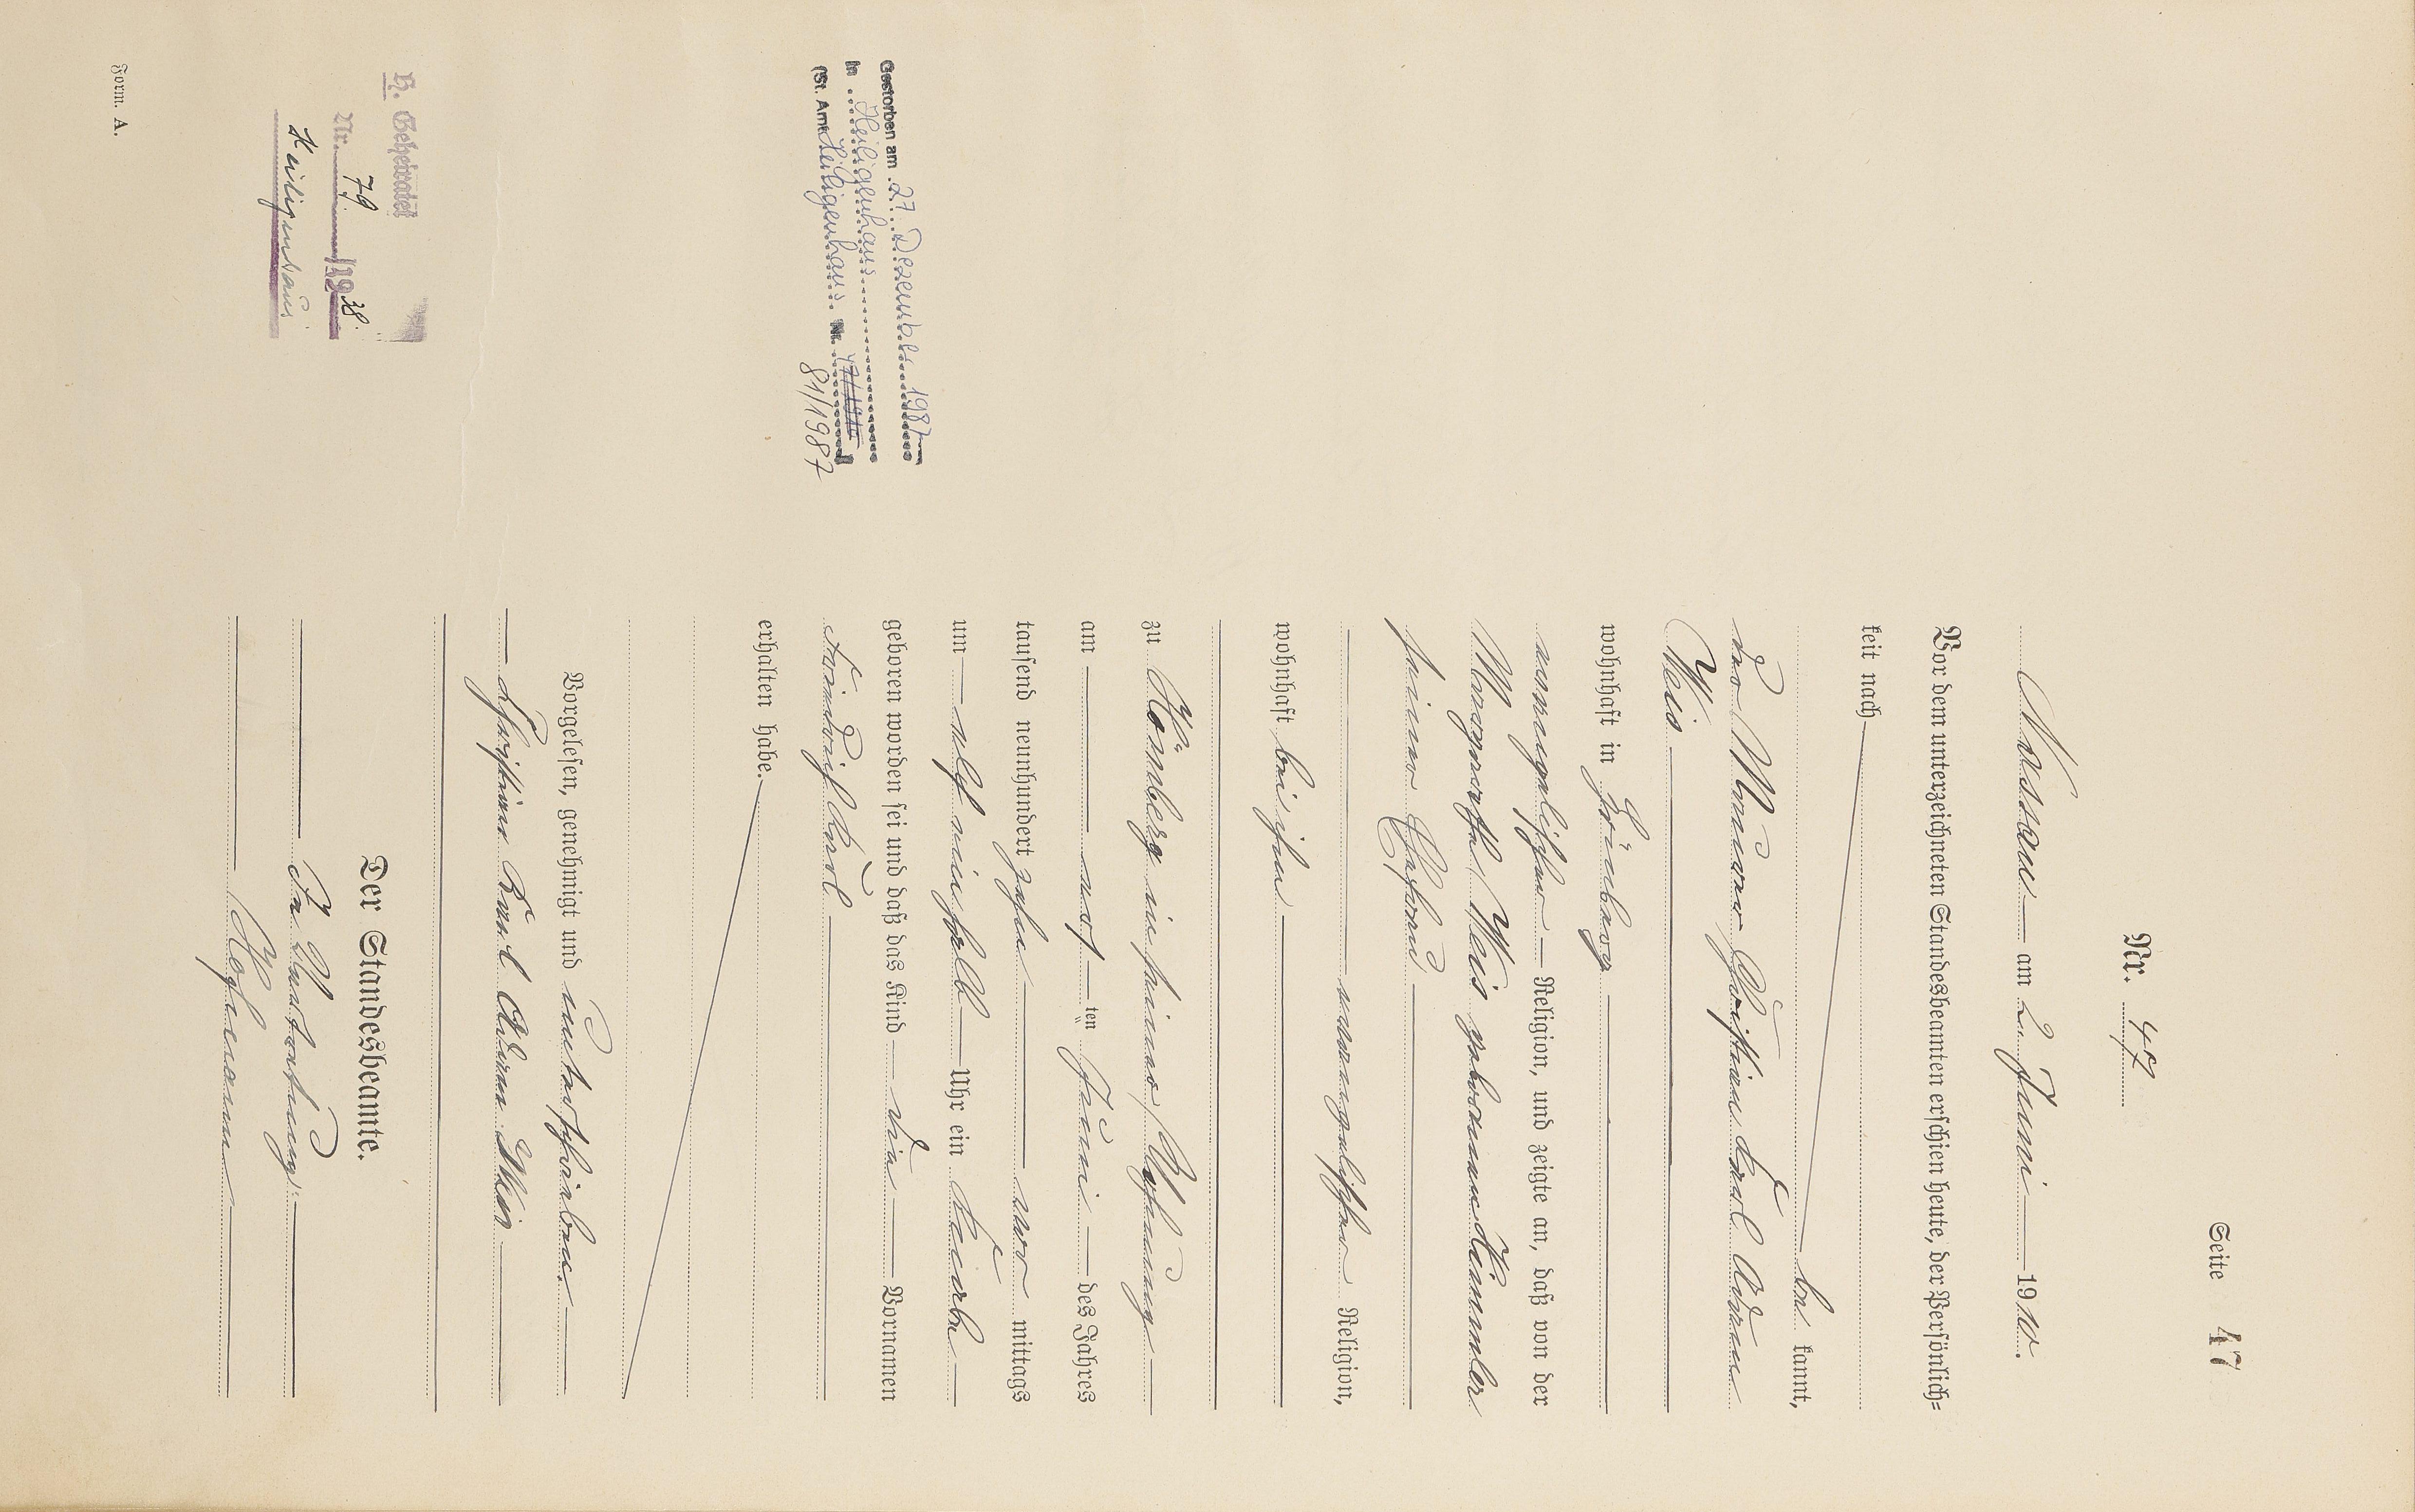 Seite 47
Nr. 47
Nassau am 2. Juni 1910.
Vor dem unterzeichneten Standesbeamten erschien heute, der Persönlich-
keit nach
be kannt,
der Maurer Christian Karl Adam
Weis
wohnhaft in Hömberg
evangelischer Religion, und zeigte an, daß von der
Margaretha Weis geborenen Hemmler
seiner Ehefrau
evangelischer Religion,
wohnhaft bei ihm
zu Hömberg in seiner Wohnung
am ersten Juni des Jahres
tausend neunhundert zehn vor mittags
um elf ein halb Uhr ein Knabe
geboren worden sei und daß das Kind die Vornamen
Heinrich Karl
erhalten habe.
Vorgelesen, genehmigt und unterschrieben.
Christian Karl Adam Weis
Der Standesbeamte.
In Vertretung:
Gestorben am 27. Dezember 1987
in Heiligenhaus
(St. Amt Heiligenhaus Nr. 47/1910)
81/1987
H. Geheiratet
Nr. 79 /1938.
Heiligenhaus
Form. A.